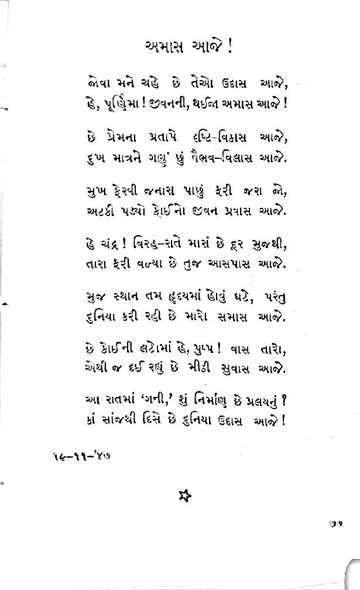 અમાસ આજે !
જોવા મને ચહે છે તેઓ ઉદાસ આજે,
હે, પૂર્ણિમા ! જીવનની, થઈજા અમાસ આજે !
છે પ્રેમના પ્રતાપે દૃષ્ટિ-વિકાસ આજે,
દુખ માત્રને ગણું છું વૈભવ-વિલાસ આજે.
સુખ ફેરવી જનારા પાછું ફરી જરા જો,
અટકી પડ્યો કોઈનો જીવન પ્રવાસ આજે.
હે ચંદ્ર ! વિરહ-રાતે મારાં છે દૂર મુજથી,
તારા ફરી વળ્યા છે તુજ આસપાસ આજે.
મુજ સ્થાન તમ હૃદયમાં હોવું ઘટે, પરંતુ
દુનિયા કરી રહી છે મારો સમાસ આજે.
છે કોઈની લટોમાં હે, પુષ્પ ! વાસ તારો,
એથી જ દઈ રહ્યું છે મીઠી સુવાસ આજે.
આ રાતમાં ‘ગની,’ શું નિર્માણ છે પ્રલયનું ?
કાં સાંજથી દિસે છે દુનિયા ઉદાસ આજે !
૧૯-૧૧-’૪૭
૭૧